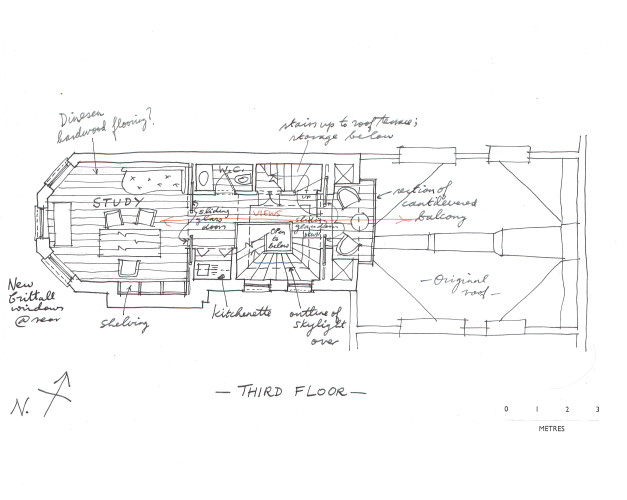 Dinesen
hardwood flooring?
stairs up to roof terrace;
storage below
W.C.
UP
STUDY
sliding
glass
door
VIEWS
sliding
glass door
open
to
below
section of
cantilevered
balcony
- Original
roof -
New
Crittall
windows
@ rear
shelving
kitchenette
outline of
skylight
over
- THIRD FLOOR -
N.
0 1 2 3
METRES